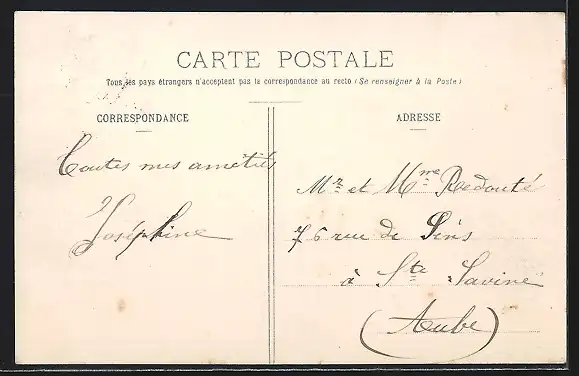 CARTE POSTALE
Tous les pays étrangers n'acceptent pas la correspondance au recto (Se renseigner à la Poste)
CORRESPONDANCE
Toutes mes amitiés
Joséphine
ADRESSE
Mr et Mme Redouté
76 rue de Sens
à Ste Savine
(Aube)